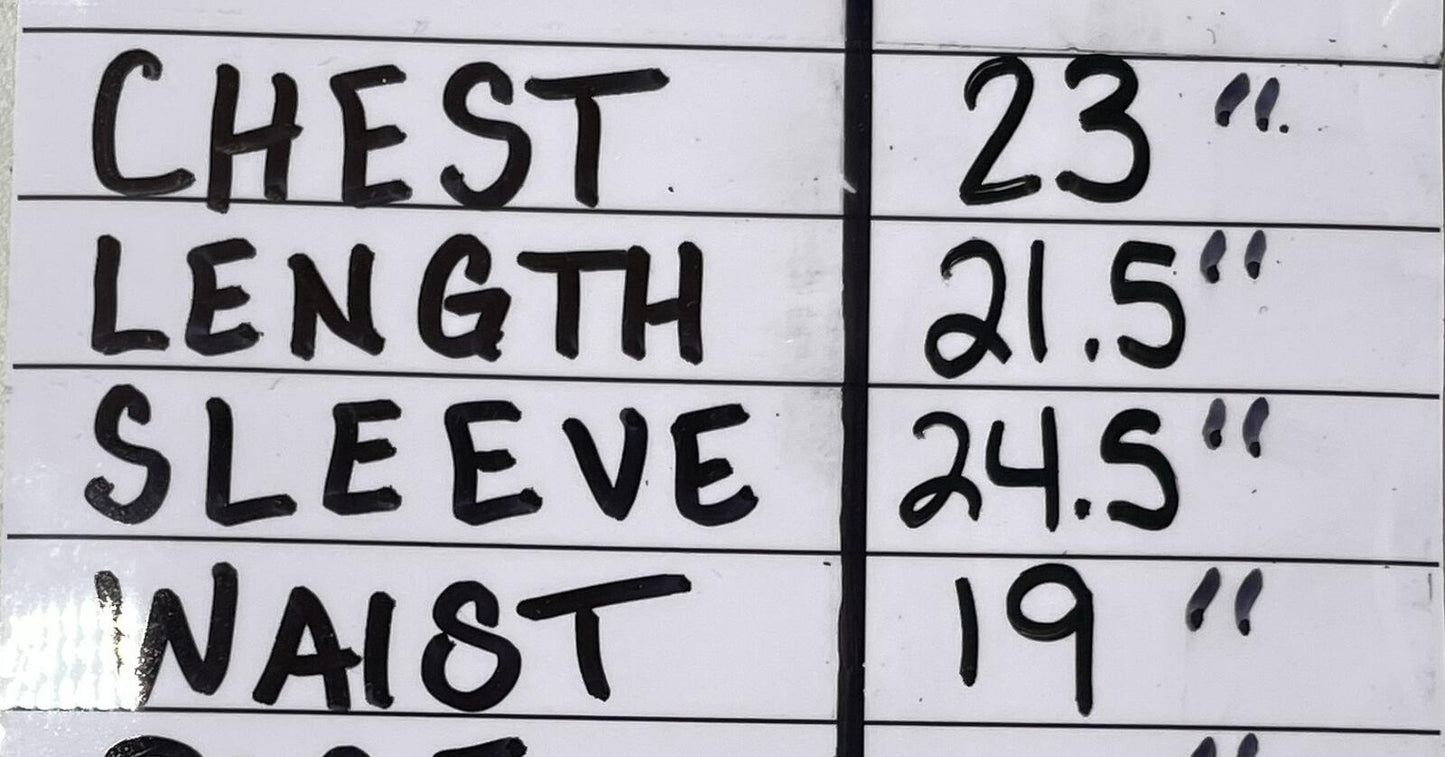 CHEST 23 "
LENGTH 21.5"
SLEEVE 24.5"
WAIST 19 "